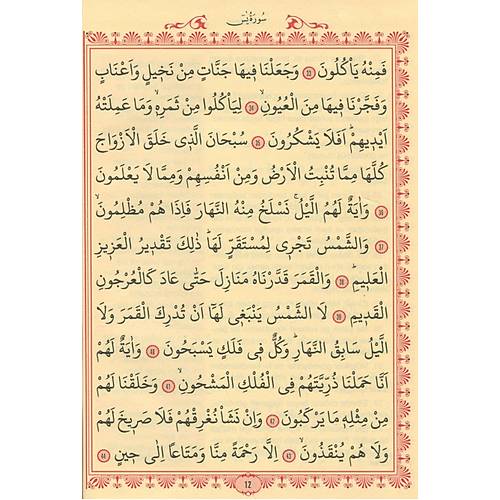 سُورَةُ يٰسٓ
فَمِنْهُ يَأْكُلُونَ ﴿33﴾ وَجَعَلْنَا فٖيهَا جَنَّاتٍ مِنْ نَخٖيلٍ وَاَعْنَابٍ
وَفَجَّرْنَا فٖيهَا مِنَ الْعُيُونِۙ ﴿34﴾ لِيَأْكُلُوا مِنْ ثَمَرِهٖۙ وَمَا عَمِلَتْهُ
اَيْدٖيهِمْۜ اَفَلَا يَشْكُرُونَ ﴿35﴾ سُبْحَانَ الَّذٖى خَلَقَ الْاَزْوَاجَ
كُلَّهَا مِمَّا تُنْبِتُ الْاَرْضُ وَمِنْ اَنْفُسِهِمْ وَمِمَّا لَا يَعْلَمُونَ
﴿36﴾ وَاٰيَةٌ لَهُمُ الَّيْلُۚ نَسْلَخُ مِنْهُ النَّهَارَ فَاِذَا هُمْ مُظْلِمُونَۙ
﴿37﴾ وَالشَّمْسُ تَجْرٖى لِمُسْتَقَرٍّ لَهَاۜ ذٰلِكَ تَقْدٖيرُ الْعَزٖيزِ
الْعَلٖيمِۜ ﴿38﴾ وَالْقَمَرَ قَدَّرْنَاهُ مَنَازِلَ حَتّٰى عَادَ كَالْعُرْجُونِ
الْقَدٖيمِ ﴿39﴾ لَا الشَّمْسُ يَنْبَغٖى لَهَٓا اَنْ تُدْرِكَ الْقَمَرَ وَلَا
الَّيْلُ سَابِقُ النَّهَارِۜ وَكُلٌّ فٖى فَلَكٍ يَسْبَحُونَ ﴿40﴾ وَاٰيَةٌ لَهُمْ
اَنَّا حَمَلْنَا ذُرِّيَّتَهُمْ فِى الْفُلْكِ الْمَشْحُونِۙ ﴿41﴾ وَخَلَقْنَا لَهُمْ
مِنْ مِثْلِهٖ مَا يَرْكَبُونَ ﴿42﴾ وَاِنْ نَشَأْ نُغْرِقْهُمْ فَلَا صَرٖيخَ لَهُمْ
وَلَا هُمْ يُنْقَذُونَۙ ﴿43﴾ اِلَّا رَحْمَةً مِنَّا وَمَتَاعًا اِلٰى حٖينٍ ﴿44﴾
12